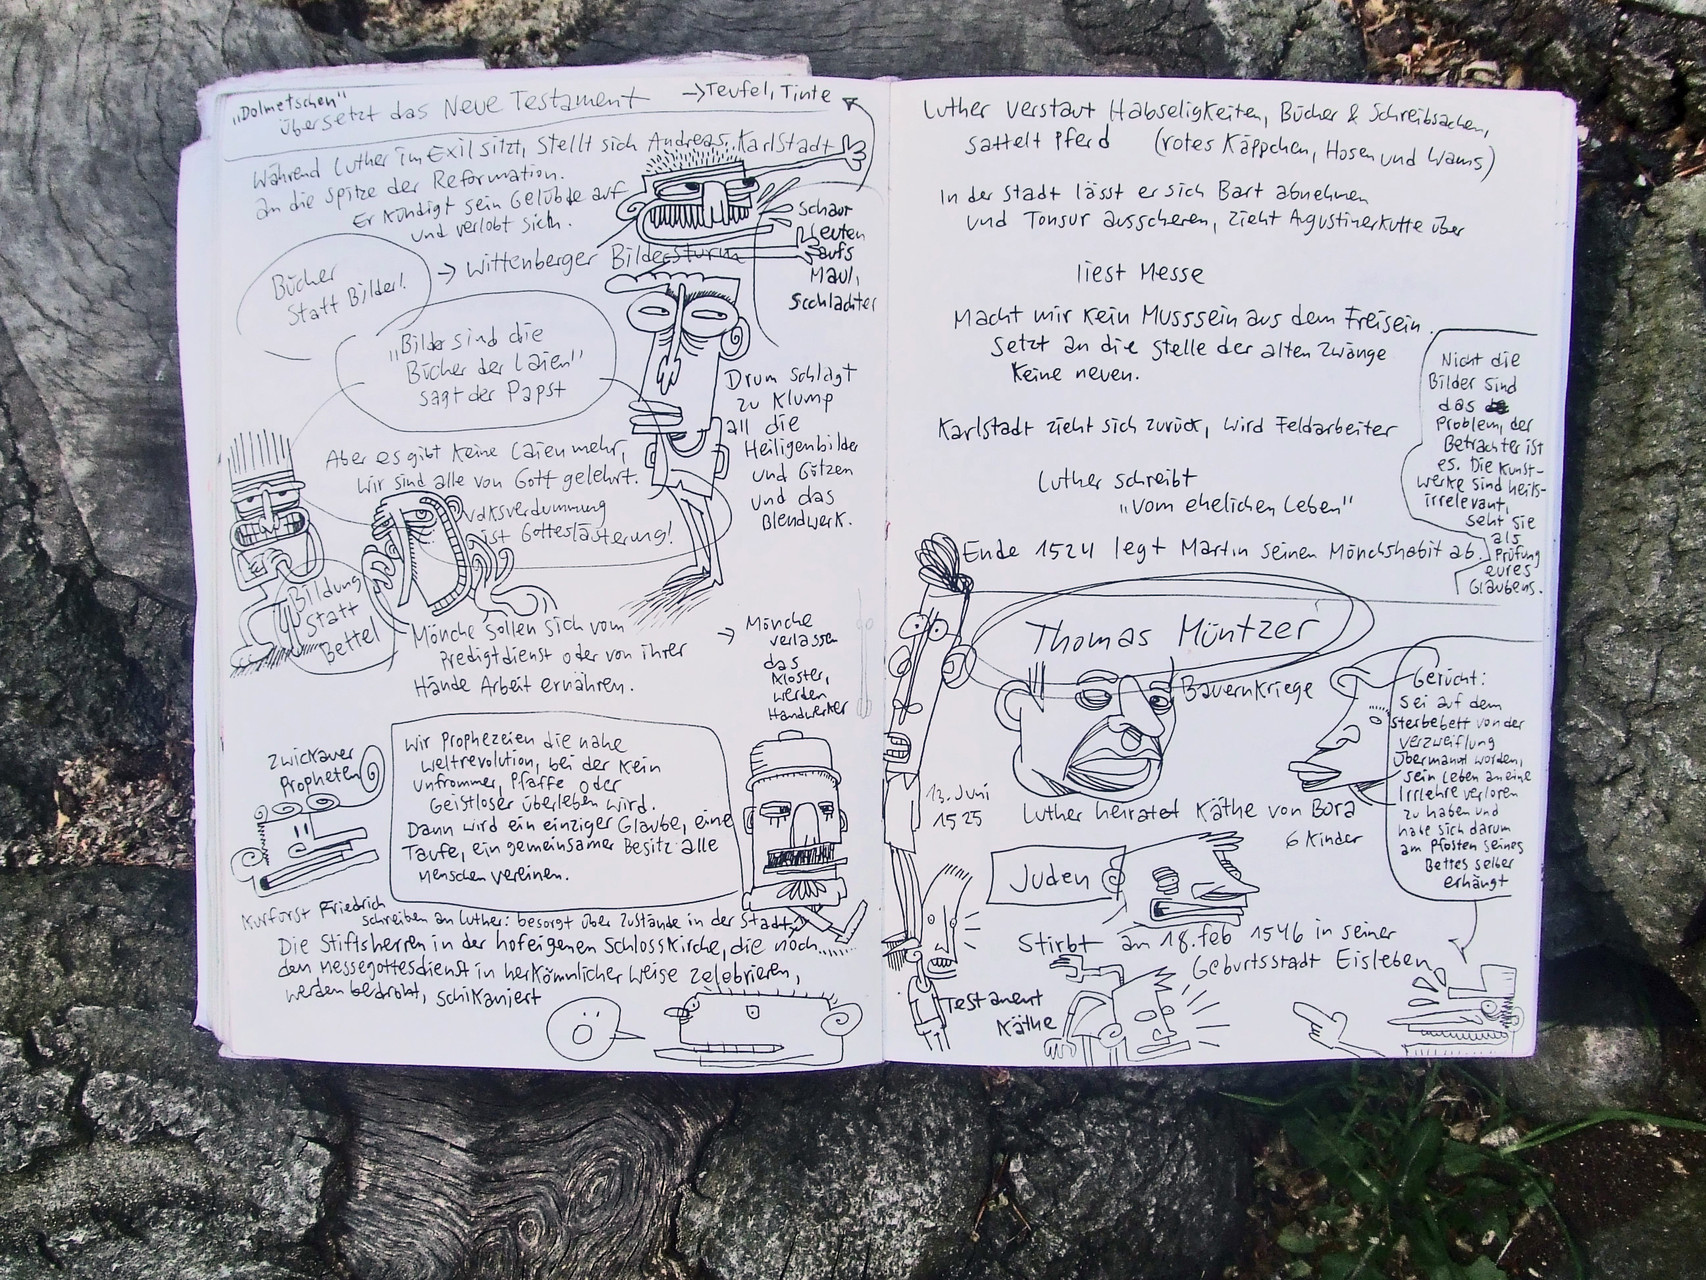 „Dolmetschen"
übersetzt das Neue Testament → Teufel, Tinte
Während Luther im Exil sitzt, stellt sich Andreas Karlstadt
an die Spitze der Reformation.
Er kündigt sein Gelübde auf
und verlobt sich.
Schaut
Leuten
aufs
Maul,
Scchlachter
Bücher
statt Bilder!
→ Wittenberger Bildersturm
„Bilder sind die
Bücher der Laien"
sagt der Papst
Drum schlagt
zu Klump
all die
Heiligenbilder
und Götzen
und das
Blendwerk.
Aber es gibt keine Laien mehr,
wir sind alle von Gott gelehrt.
Volksverdummung
ist Gotteslästerung!
Bildung
statt
Bettel
Mönche sollen sich vom
Predigtdienst oder von ihrer
Hände Arbeit ernähren.
→ Mönche
verlassen
das
Kloster,
werden
Handwerker
Zwickauer
Propheten
Wir prophezeien die nahe
Weltrevolution, bei der kein
Unfrommer, Pfaffe oder
Geistloser überleben wird.
Dann wird ein einziger Glaube, eine
Taufe, ein gemeinsamer Besitz alle
Menschen vereinen.
Kurfürst Friedrich
schreiben an Luther: besorgt über Zustände in der Stadt,
Die Stiftsherren in der hofeigenen Schlosskirche, die noch.....
den Messegottesdienst in herkömmlicher Weise zelebrieren,
werden bedroht, schikaniert
Luther verstaut Habseligkeiten, Bücher & Schreibsachen,
sattelt Pferd (rotes Käppchen, Hosen und Wams)
In der Stadt lässt er sich Bart abnehmen
und Tonsur ausscheren, zieht Augustinerkutte über
liest Messe
Macht mir kein Musssein aus dem Freisein.
Setzt an die Stelle der alten Zwänge
keine neuen.
Nicht die
Bilder sind
das
Problem, der
Betrachter ist
es. Die Kunst-
werke sind heils-
irrelevant,
seht sie
als
Prüfung
eures
Glaubens.
Karlstadt zieht sich zurück, wird Feldarbeiter
Luther schreibt
„Vom ehelichen Leben"
Ende 1524 legt Martin seinen Mönchshabit ab.
Thomas Müntzer
Bauernkriege
Gerücht:
Sei auf dem
Sterbebett von der
Verzweiflung
übermannt worden,
sein Leben an eine
Irrlehre verloren
zu haben und
habe sich darum
am Pfosten seines
Bettes selber
erhängt
13. Juni
1525
Luther heiratet Käthe von Bora
6 Kinder
Juden
Stirbt am 18. Feb 1546 in seiner
Geburtsstadt Eisleben
Testament
Käthe